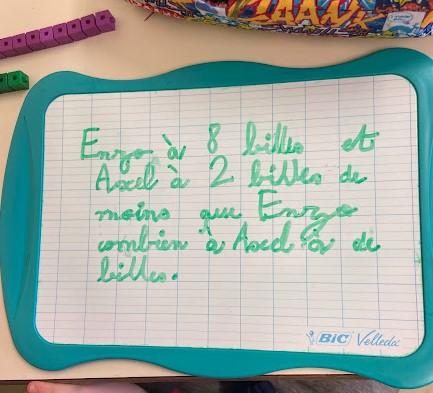 Enzo à 8 billes et
Axel à 2 billes de
moins que Enzo
combien à Axel à de
billes.
BIC Velleda